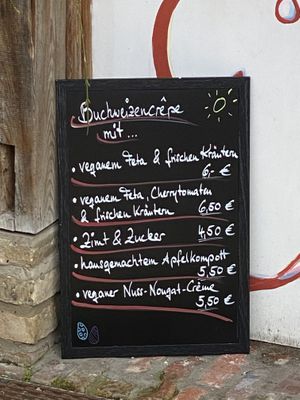 Buchweizencrêpe
mit...
• veganem Feta & frischen Kräutern
6,- €
• veganem Feta, Cherrytomaten
& frischen Kräutern 6,50 €
• Zimt & Zucker 4,50 €
• hausgemachtem Apfelkompott
5,50 €
• veganer Nuss-Nougat-Crème
5,50 €